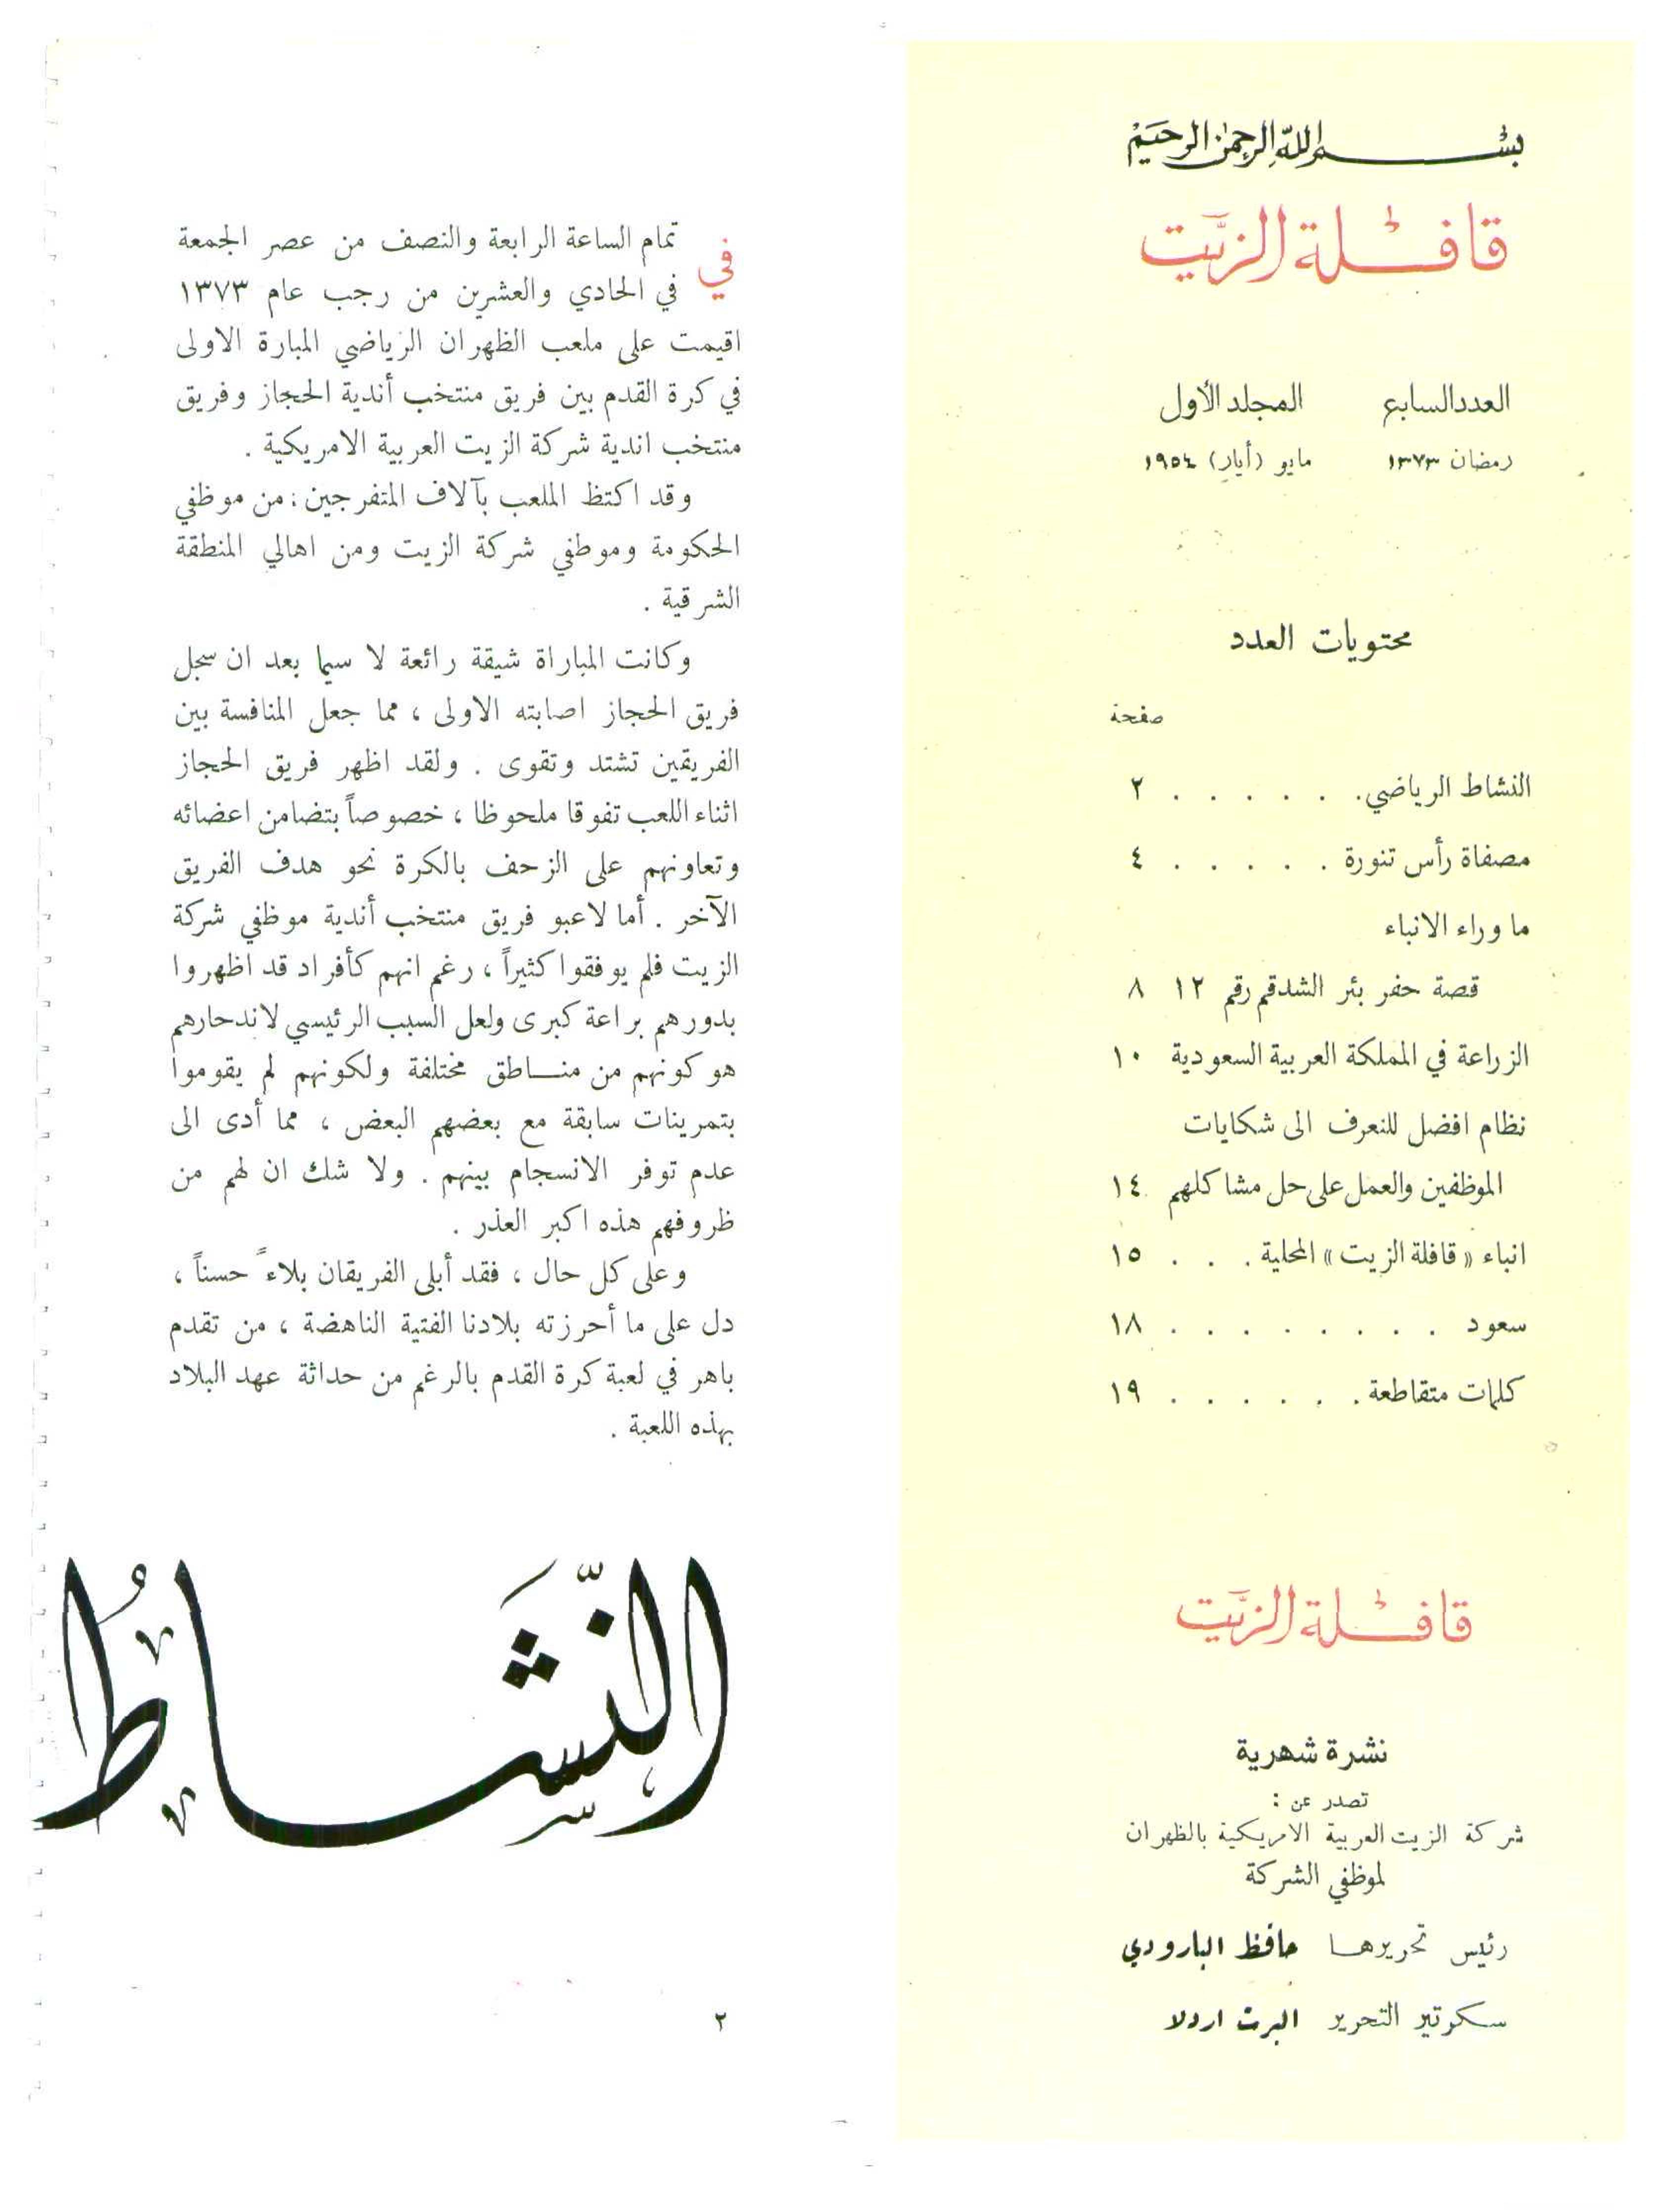 بسم الله الرحمن الرحيم
قافلة الزيت
العدد السابع المجلد الأول
رمضان ١٣٧٣ مايو (أيار) ١٩٥٤
محتويات العدد
صفحة
النشاط الرياضي . . . . . . ٢
مصفاة رأس تنورة . . . . . . ٤
ما وراء الانباء
قصة حفر بئر الشدقم رقم ١٢ ٨
الزراعة في المملكة العربية السعودية ١٠
نظام افضل للتعرف الى شكايات
الموظفين والعمل على حل مشاكلهم ١٤
انباء « قافلة الزيت » المحلية . . . ١٥
سعود . . . . . . . . ١٨
كلمات متقاطعة . . . . . . ١٩
قافلة الزيت
نشرة شهرية
تصدر عن :
شركة الزيت العربية الامريكية بالظهران
لموظفي الشركة
رئيس تحريرها حافظ البارودي
سكرتير التحرير البرت اردلا
في تمام الساعة الرابعة والنصف من عصر الجمعة
في الحادي والعشرين من رجب عام ١٣٧٣
اقيمت على ملعب الظهران الرياضي المبارة الاولى
في كرة القدم بين فريق منتخب أندية الحجاز وفريق
منتخب اندية شركة الزيت العربية الامريكية .
وقد اكتظ الملعب بآلاف المتفرجين : من موظفي
الحكومة وموظفي شركة الزيت ومن اهالي المنطقة
الشرقية .
وكانت المباراة شيقة رائعة لا سيما بعد ان سجل
فريق الحجاز اصابته الاولى ، مما جعل المنافسة بين
الفريقين تشتد وتقوى . ولقد اظهر فريق الحجاز
اثناء اللعب تفوقا ملحوظا ، خصوصاً بتضامن اعضائه
وتعاونهم على الزحف بالكرة نحو هدف الفريق
الآخر . أما لاعبو فريق منتخب أندية موظفي شركة
الزيت فلم يوفقوا كثيراً ، رغم انهم كأفراد قد اظهروا
بدورهم براعة كبرى ولعل السبب الرئيسي لاندحارهم
هو كونهم من مناطق مختلفة ولكونهم لم يقوموا
بتمرينات سابقة مع بعضهم البعض ، مما أدى الى
عدم توفر الانسجام بينهم . ولا شك ان لهم من
ظروفهم هذه اكبر العذر .
وعلى كل حال ، فقد أبلى الفريقان بلاءً حسناً ،
دل على ما أحرزته بلادنا الفتية الناهضة ، من تقدم
باهر في لعبة كرة القدم بالرغم من حداثة عهد البلاد
بهذه اللعبة .
النَّشَاطُ
٢